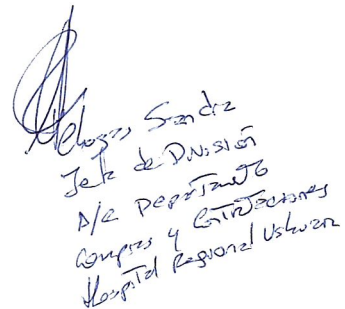 Sandra
Jefa de División
A/C Departamento
Compras y Contrataciones
Hospital Regional Ushuaia